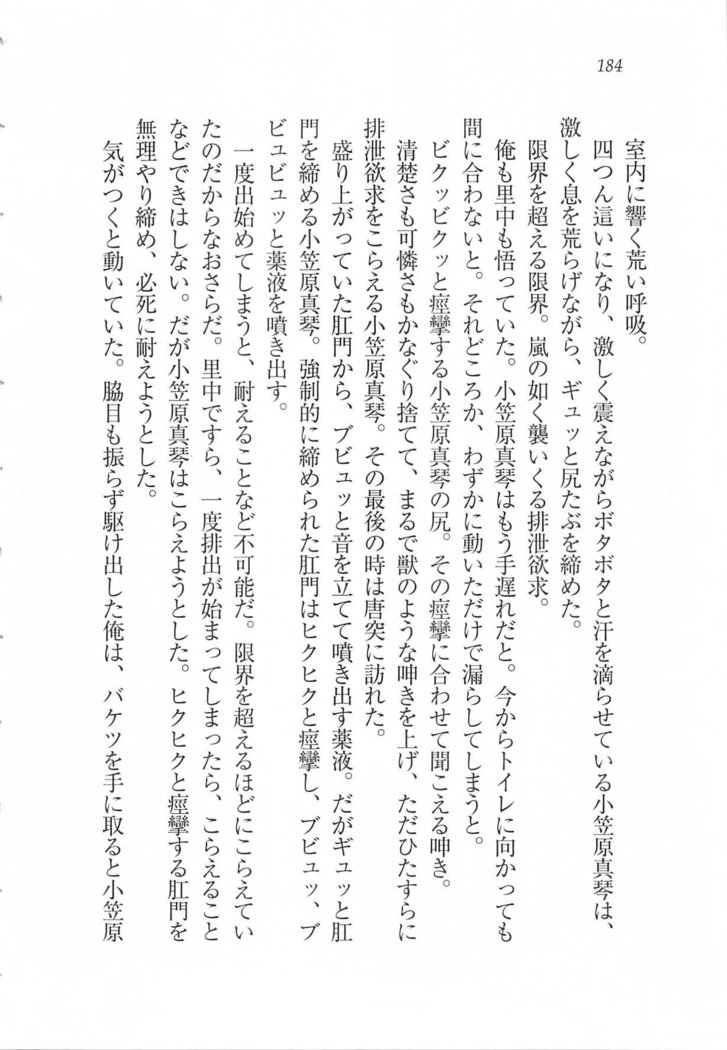 184
室内に響く荒い呼吸。
四つん這いになり、激しく震えながらボタボタと汗を滴らせている小笠原真琴は、
激しく息を荒らげながら、ギュッと尻たぶを締めた。
限界を超える限界。嵐の如く襲いくる排泄欲求。
俺も里中も悟っていた。小笠原真琴はもう手遅れだと。今からトイレに向かっても
間に合わないと。それどころか、わずかに動いただけで漏らしてしまうと。
ビクッビクッと痙攣する小笠原真琴の尻。その痙攣に合わせて聞こえる呻き。
清楚さも可憐さもかなぐり捨てて、まるで獣のような呻きを上げ、ただひたすらに
排泄欲求をこらえる小笠原真琴。その最後の時は唐突に訪れた。
盛り上がっていた肛門から、ブビュッと音を立てて噴き出す薬液。だがギュッと肛
門を締める小笠原真琴。強制的に締められた肛門はヒクヒクと痙攣し、ブビュッ、ブ
ビュビュッと薬液を噴き出す。
一度出始めてしまうと、耐えることなど不可能だ。限界を超えるほどにこらえてい
たのだからなおさらだ。里中ですら、一度排出が始まってしまったら、こらえること
などできはしない。だが小笠原真琴はこらえようとした。ヒクヒクと痙攣する肛門を
無理やり締め、必死に耐えようとした。
気がつくと動いていた。脇目も振らず駆け出した俺は、バケツを手に取ると小笠原